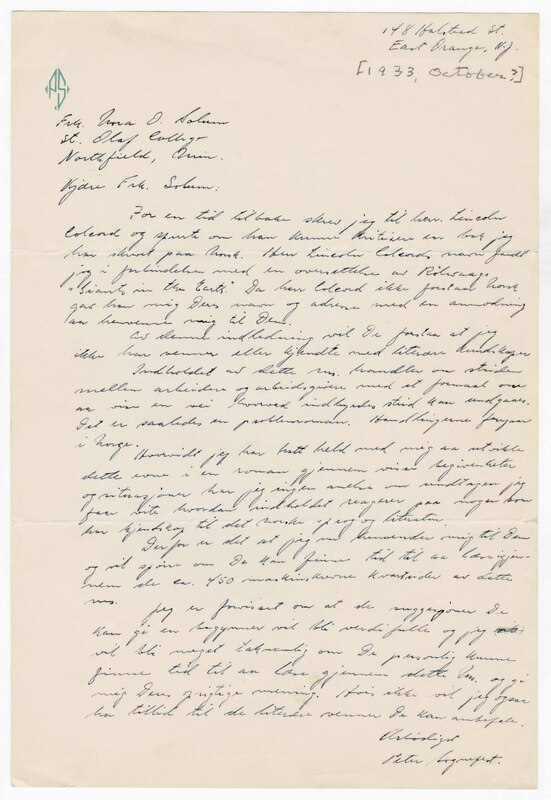 148 Halstead St.
East Orange, N.J.
[1933, October?]
PS
Frk. Nora O. Solum
St. Olaf College
Northfield, Minn.
Kjære Frk. Solum:
For en tid tilbake skrev jeg til herr. Lincoln
Colcord og spurte om han kunne kritisere en bok jeg
har skrevet paa norsk. Herr Lincoln Colcords navn fandt
jeg i forbindelsen med en oversettelse av Rölvaags
"Giants in the Earth". Da herr Colcord ikke forstaar norsk
gav han mig Deres navn og adresse med en anmodning
aa henvende mig til Dem.
Av denne indledning vil De forstaa at jeg
ikke har venner eller kjendte med literære kundskaper
Indholdet av dette ms. handler om striden
mellem arbeidere og arbeidsgivere med et formaal om
aa vise en vei hvorved indbyrdes strid kan undgaaes.
Det er saaledes en problemroman. Handlingerne foregaar
i Norge.
Hvorvidt jeg har hatt held med mig aa utvikle
dette emne i en roman gjennem visse begivenheter
og situasjoner har jeg ingen anelse om undtagen jeg
faar vite hvordan indholdet reagerer paa nogen som
har kjendskap til det norske sprog og literatur.
Derfor er det at jeg nu henvender mig til Dem
og vil spørre om De kan finne tid til aa læse igjen-
nem de ca. 450 maskinskrevne kvartsider av dette
ms.
Jeg er forvisset om at de suggesjoner De
kan gi en begynner vil bli verdifulle og jeg
vil bli meget taknemlig om De personlig kunne
finne tid til aa læse gjennem dette ms. og gi
mig Deres oprigtige mening. Hvis ikke vil jeg ogsaa
ha tillid til de literære venner De kan anbefale.
Ærbødigst
Peter Sognefest.